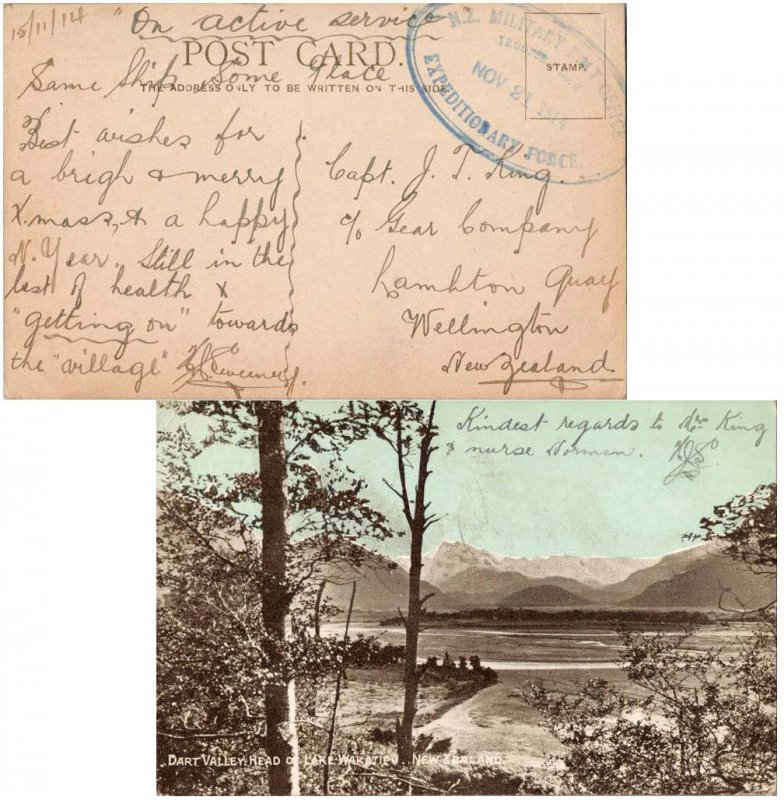 15/11/14 "On active service"
POST CARD.
Same Ship, Some Place
THE ADDRESS ONLY TO BE WRITTEN ON THIS SIDE
STAMP.
N.Z. MILITARY POST OFFICE
NOV 21 1914
EXPEDITIONARY FORCE.
Best wishes for
a brigh & merry
X.mass, & a happy
N. Year. Still in the
best of health &
"getting on" towards
the "village"
Capt. J. T. King.
c/o Gear Company
Lambton Quay
Wellington
New Zealand
Kindest regards to Mrs King
& nurse Norman.
DART VALLEY, HEAD OF LAKE WAKATIPU. NEW ZEALAND.